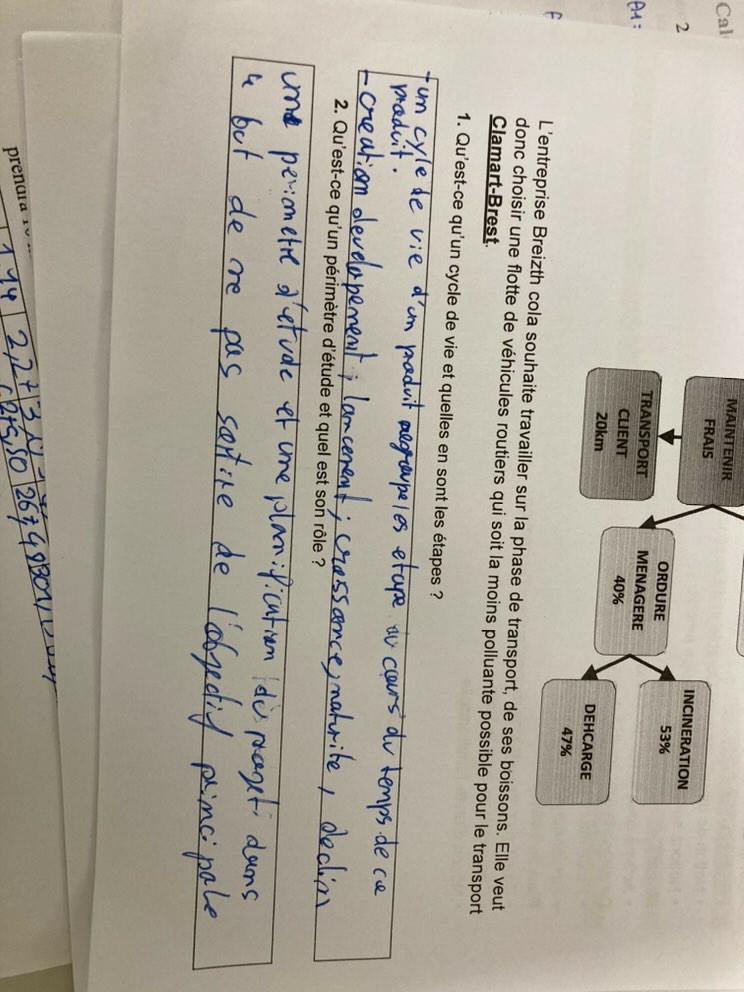 Cal
2
A1:
F
MAINTENIR
FRAIS
TRANSPORT
CLIENT
20km
ORDURE
MENAGERE
40%
INCINERATION
53%
DEHCARGE
47%
L'entreprise Breizth cola souhaite travailler sur la phase de transport, de ses boissons. Elle veut
donc choisir une flotte de véhicules routiers qui soit la moins polluante possible pour le transport
Clamart-Brest.
1. Qu'est-ce qu'un cycle de vie et quelles en sont les étapes ?
- un cyle de vie d'un produit regroupe les etape au cours du temps de ce
produit.
- creation developement ; lancement ; croissance, maturite, declin
2. Qu'est-ce qu'un périmètre d'étude et quel est son rôle ?
une perimetre d'etude et une planification du projet dans
le but de ne pas sortire de l'objectif principale
prendra